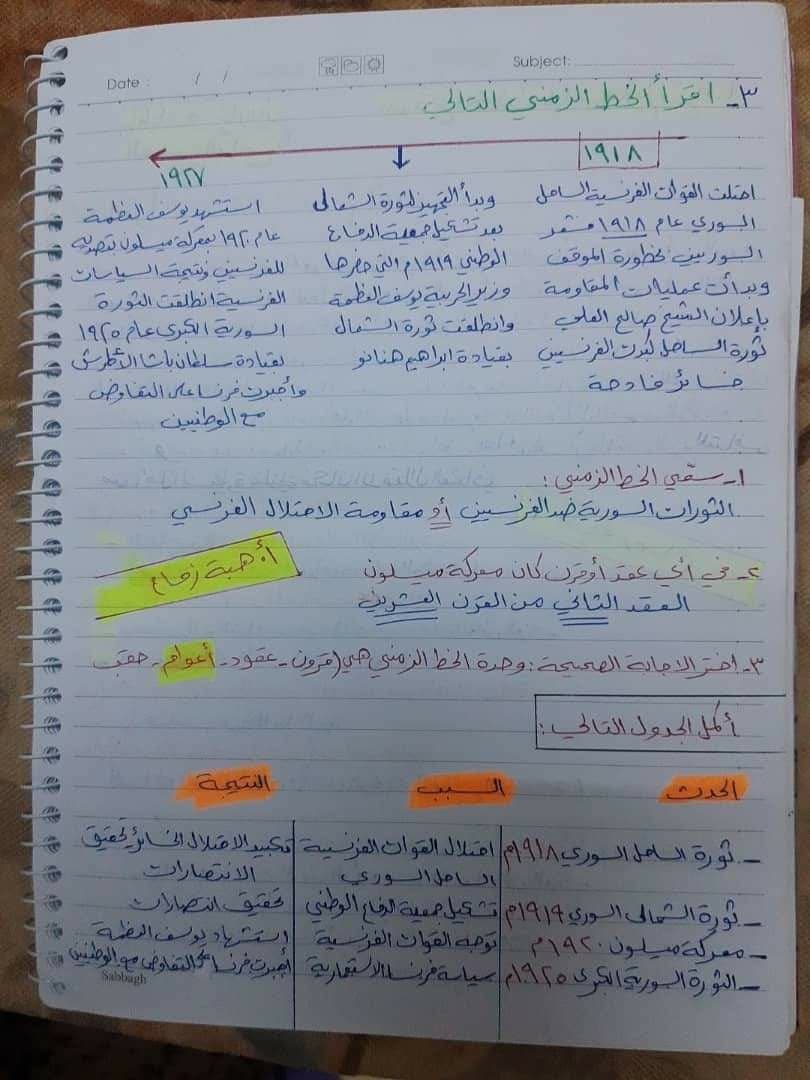 Date : / /
Subject:
٣- اقرأ الخط الزمني التالي
١٩١٨
١٩٢٧
احتلت القوات الفرنسية الساحل
السوري عام ١٩١٨ فشعر
السوريين بخطورة الموقف
وبدأت عمليات المقاومة
بإعلان الشيخ صالح العلي
ثورة الساحل كبدت الفرنسيين
خسائر فادحة
وبدأ التجهيز لثورة الشمال
بعد تشكيل جمعية الدفاع
الوطني ١٩١٩م التي حضرها
وزير الحربية يوسف العظمة
وانطلقت ثورة الشمال
بقيادة ابراهيم هنانو
استشهد يوسف العظمة
عام ١٩٢٠ بمعركة ميسلون بتصديه
للفرنسيين ونتيجة السياسات
الفرنسية انطلقت الثورة
السورية الكبرى عام ١٩٢٥
بقيادة سلطان باشا الأطرش
وأجبرت فرنسا على التفاوض
مع الوطنيين
١- سمّي الخط الزمني :
الثورات السورية ضد الفرنسيين أو مقاومة الاحتلال الفرنسي
٢- في أي عقد أو قرن كان معركة ميسلون
أ. هبة زمام
العقد الثاني من القرن العشرين
٣- اختر الاجابة الصحيحة : وحدة الخط الزمني هي (قرون - عقود - أعوام - حقب
أكمل الجدول التالي :
الحدث السبب النتيجة
- ثورة الساحل السوري ١٩١٨م احتلال القوات الفرنسية الساحل السوري تكبيد الاحتلال الخسائر تحقيق الانتصارات
- ثورة الشمال السوري ١٩١٩م تشكيل جمعية الدفاع الوطني تحقيق انتصارات
- معركة ميسلون ١٩٢٠م توجه القوات الفرنسية استشهاد يوسف العظمة
- الثورة السورية الكبرى ١٩٢٥م سياسة فرنسا الاستعمارية أجبرت فرنسا على التفاوض مع الوطنيين
Sabbagh